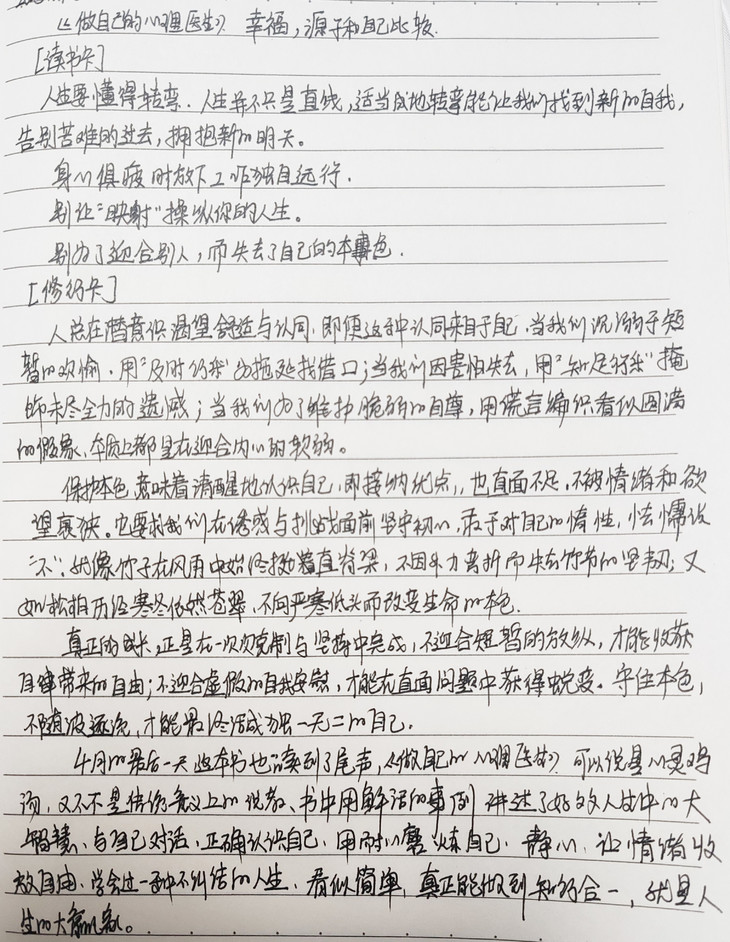 《做自己的心理医生》 幸福,源于和自己比较.
[读书卡]
人生要懂得转弯.人生并不只是直线,适当成地转弯能让我们找到新的自我,
告别苦难的过去,拥抱新的明天。
身心俱疲时放下工作独自远行.
别让"映射"操纵你的人生。
别为了迎合别人,而失去了自己的本色.
[修行卡]
人总在潜意识渴望舒适与认同,即便这种认同来自于自己.当我们沉溺于短
暂的欢愉,用"及时行乐"为拖延找借口;当我们因害怕失去,用"知足行乐"掩
饰未尽全力的遗憾;当我们为了维护脆弱的自尊,用谎言编织看似圆满
的假象,本质上都是在迎合内心的软弱。
保护本色意味着清醒地认识自己,即接纳优点,也直面不足,不被情绪和欲
望裹挟。也要求我们在诱惑与挑战面前坚守初心,敢于对自己的惰性,怯懦说
"不",就像竹子在风雨中始终挺着直脊梁,不因外力弯折而失去竹节的坚韧;又
如松柏历经寒冬依然苍翠,不向严寒低头而改变生命的本色.
真正的成长,正是在一次次克制与坚持中完成,不迎合短暂的放纵,才能收获
自律带来的自由;不迎合虚假的自我安慰,才能在直面问题中获得蜕变。守住本色,
不随波逐流,才能最终活成独一无二的自己.
4月的最后一天这本书也读到了尾声,《做自己的心理医生》可以说是心灵鸡
汤,又不不是传统意义上的说教、书中用鲜活的事例 讲述了好多人生中的大
智慧、与自己对话,正确认识自己,用耐心磨炼自己,静心,让情绪收
放自由,学会过一种不纠结的人生,看似简单,真正能做到知行合一,就是人
生的大赢家。